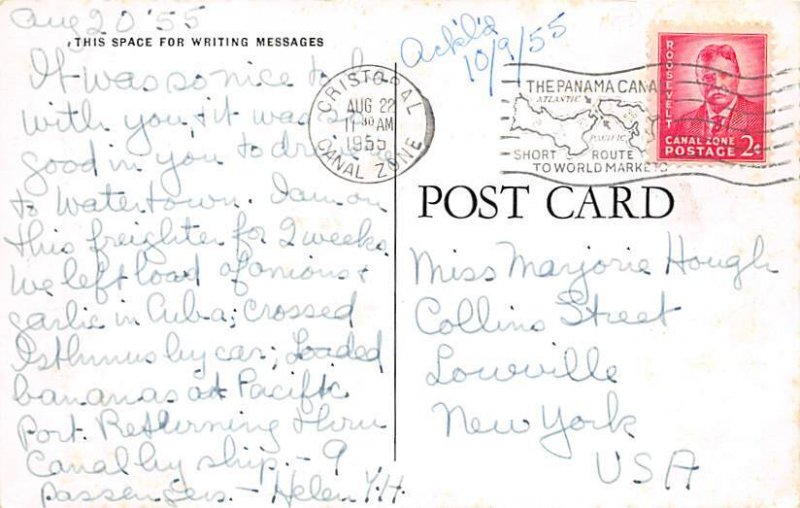 Aug 20 '55
THIS SPACE FOR WRITING MESSAGES
It was so nice to be
with you & it was so
good in you to drive me
to Watertown. I am on
this freighter for 2 weeks.
We left load of onions &
garlic in Cuba; crossed
Isthmus by car; Loaded
bananas at Pacific
Port. Returning thru
Canal by ship. - 9
passengers. - Helen Y.H.
Ack'l'd
10/9/55
CRISTOBAL
AUG 22
11 30 AM
1955
CANAL ZONE
THE PANAMA CANA
ATLANTIC
PACIFIC
SHORT ROUTE
TO WORLD MARKETS
ROOSEVELT
CANAL ZONE
POSTAGE 2¢
POST CARD
Miss Marjorie Hough
Collins Street
Lowville
New York
USA